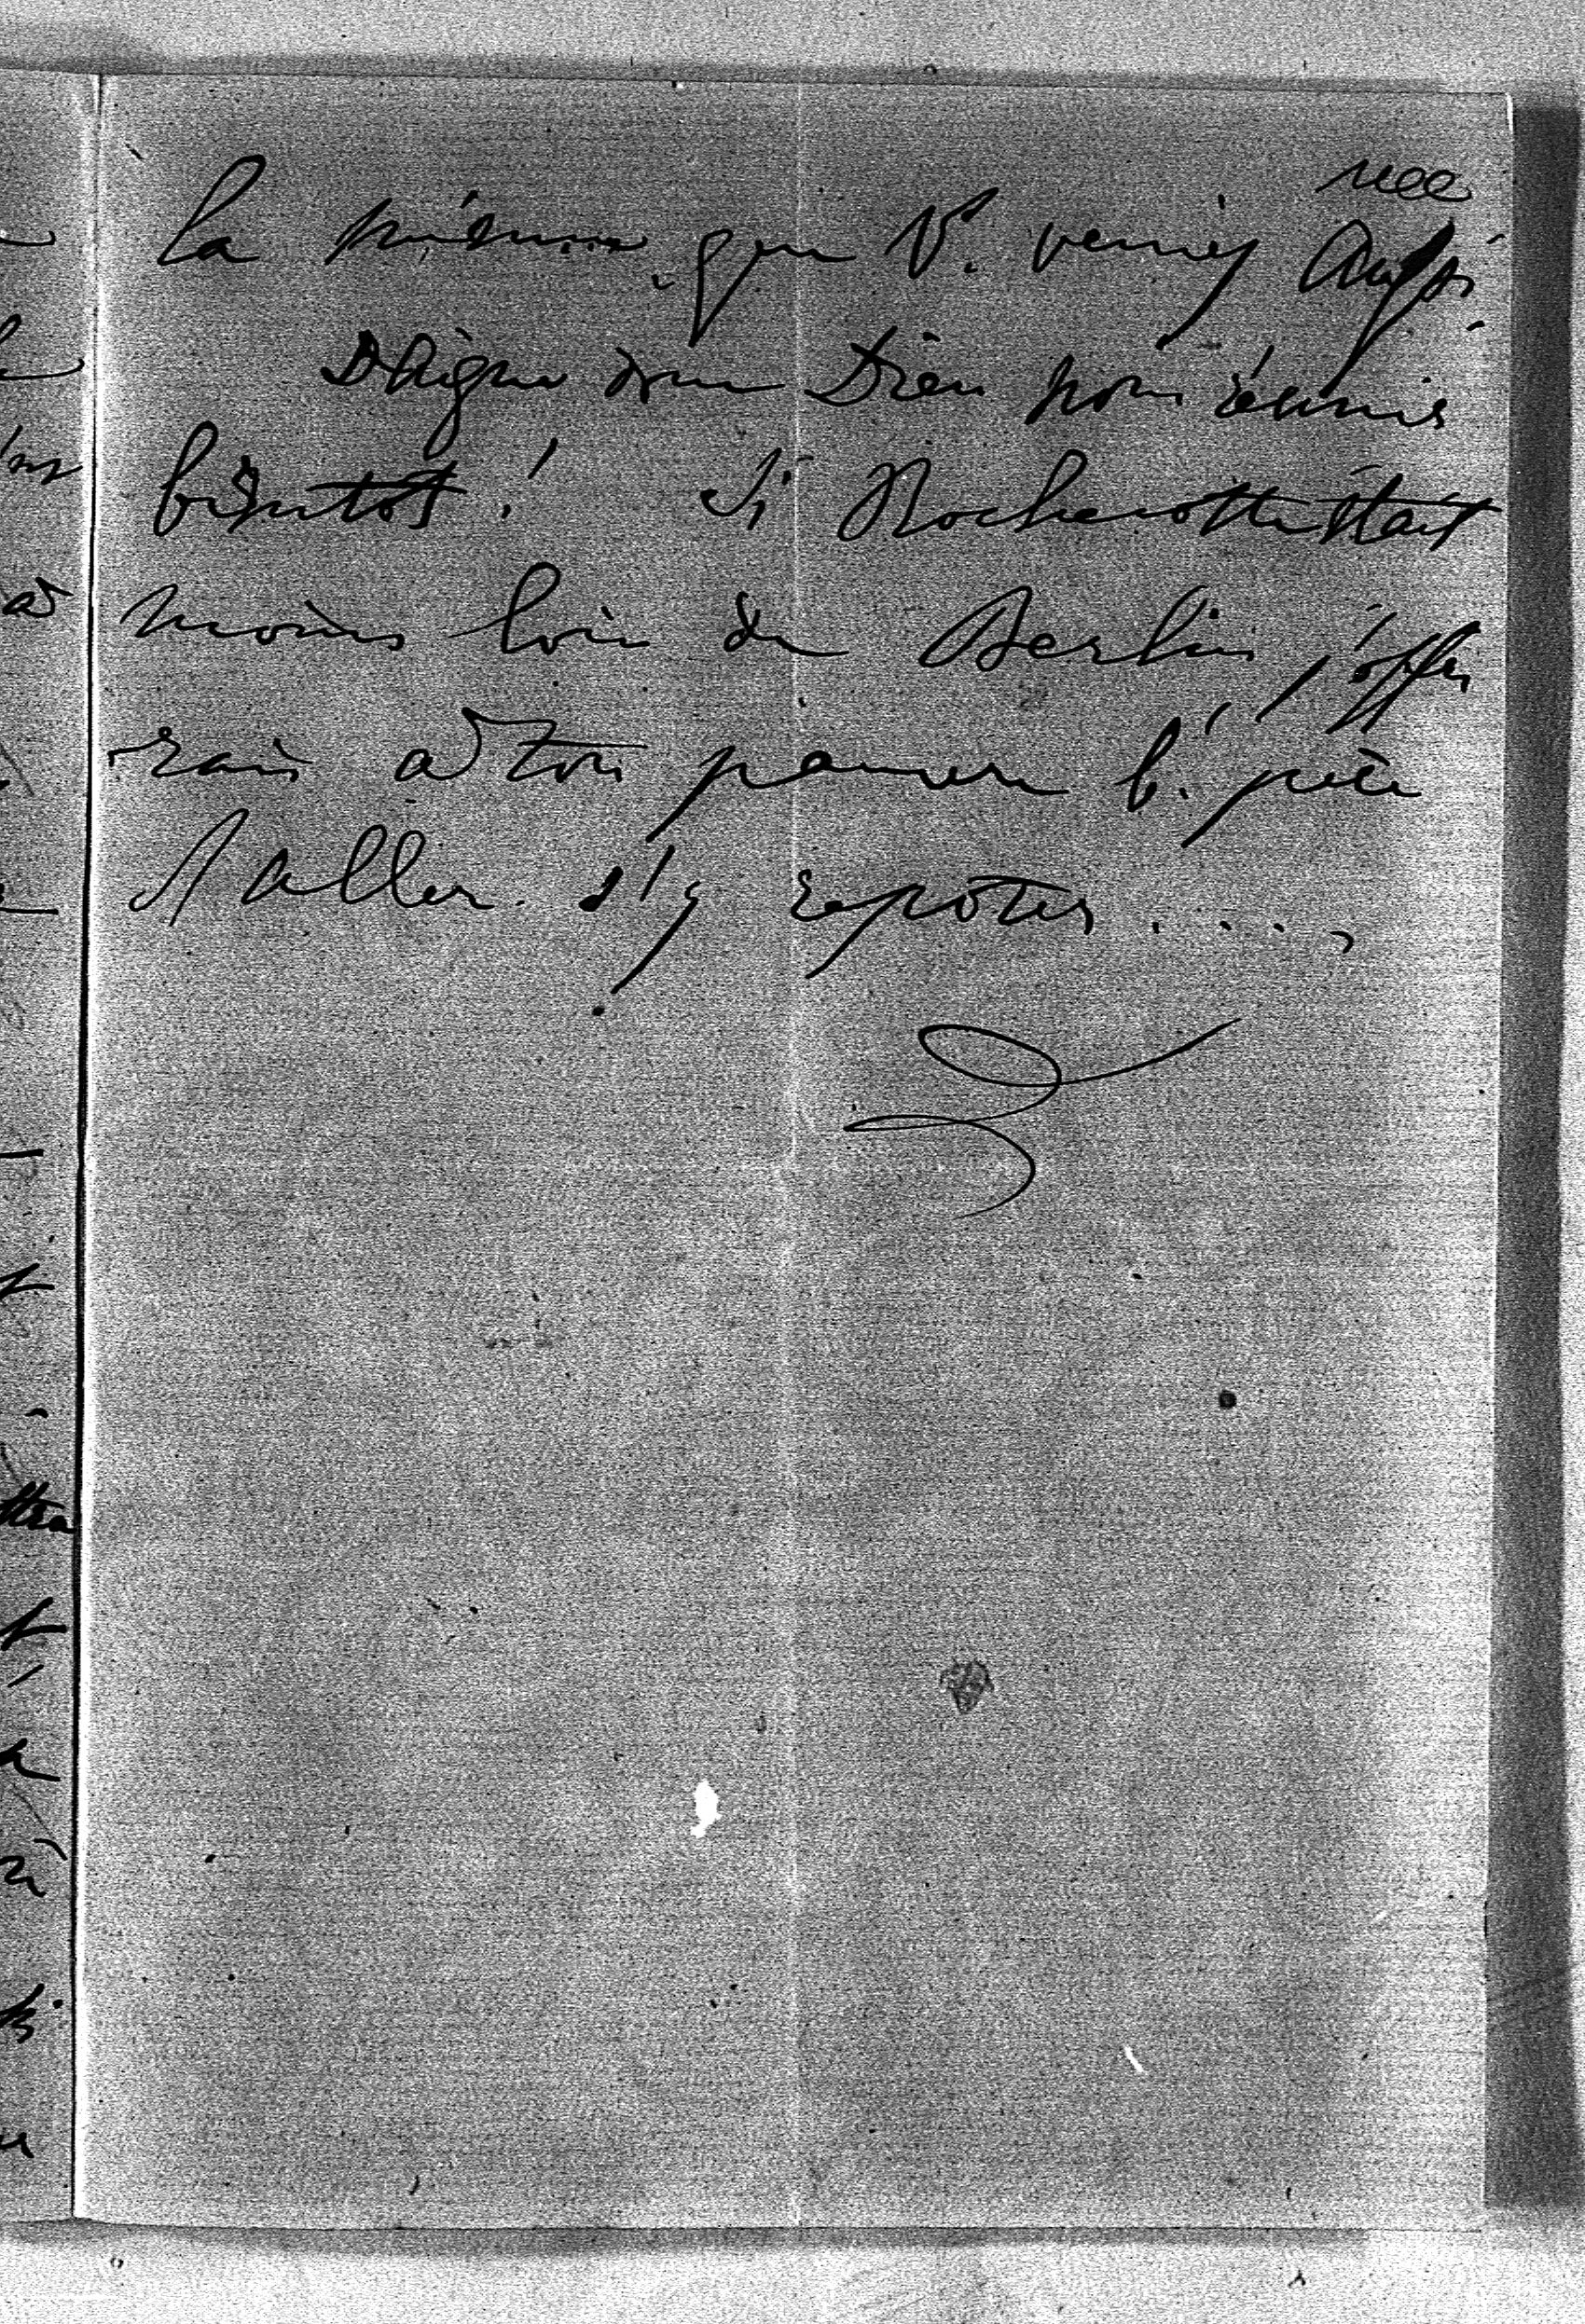 la que V. veniez aussi
Daigne donc Dieu nous réunir
bientot! Si Rochecotte était
moins loin de Berlin, j'offri
rais à ton pauvre b. père
d'aller s'y reposer ....,